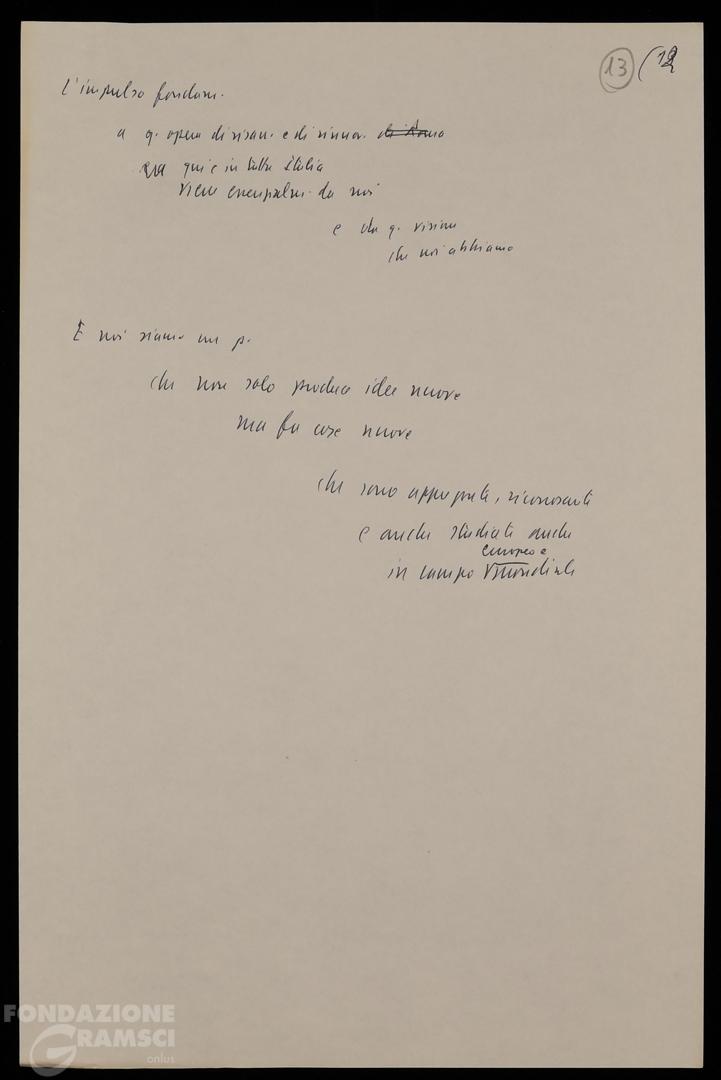 13 (12
L'impulso fondam.
a q. opera di risan. e di rinnov. di Roma
qui e in tutta Italia
viene essenzialm. da noi
e da q. visione
che noi abbiamo
E noi siamo un p.
che non solo produce idee nuove
ma fa cose nuove
che sono apprezzate, riconosciute
e anche studiate anche
europeo e
in campo mondiale
FONDAZIONE
GRAMSCI
onlus